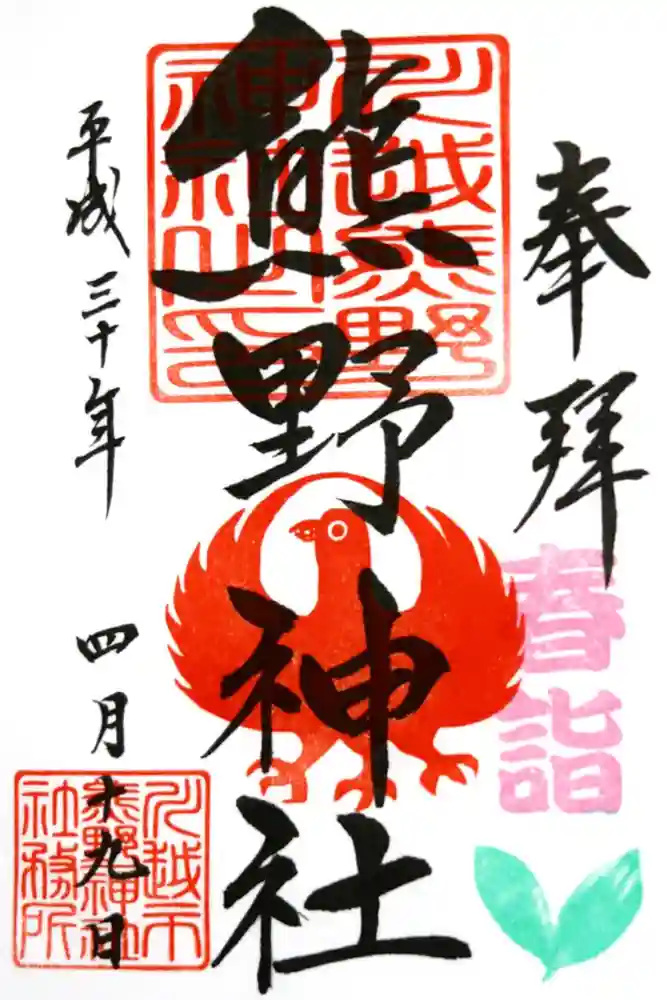 奉拝
春詣
熊野神社
川越熊野
神社之印
平成三十年
四月十九日
川越市
熊野神社
社務所